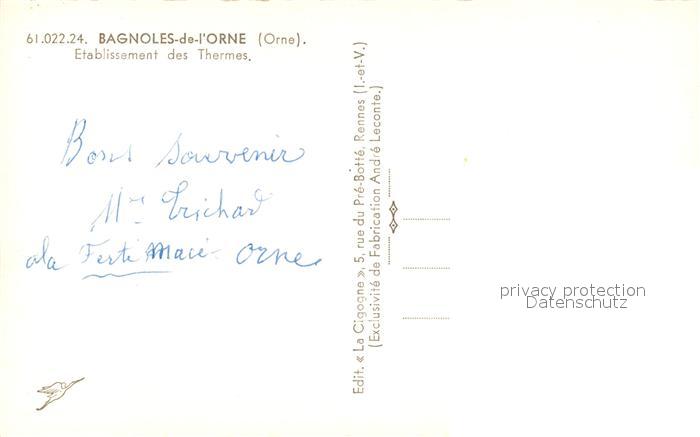 61.022.24. BAGNOLES-de-l'ORNE (Orne).
Etablissement des Thermes.
Bons souvenir
Mme Trichard
ala Ferté Macé - Orne
Edit. « La Cigogne », 5, rue du Pré-Botté, Rennes (I.-et-V.)
(Exclusivité de Fabrication André Leconte.)
privacy protection
Datenschutz